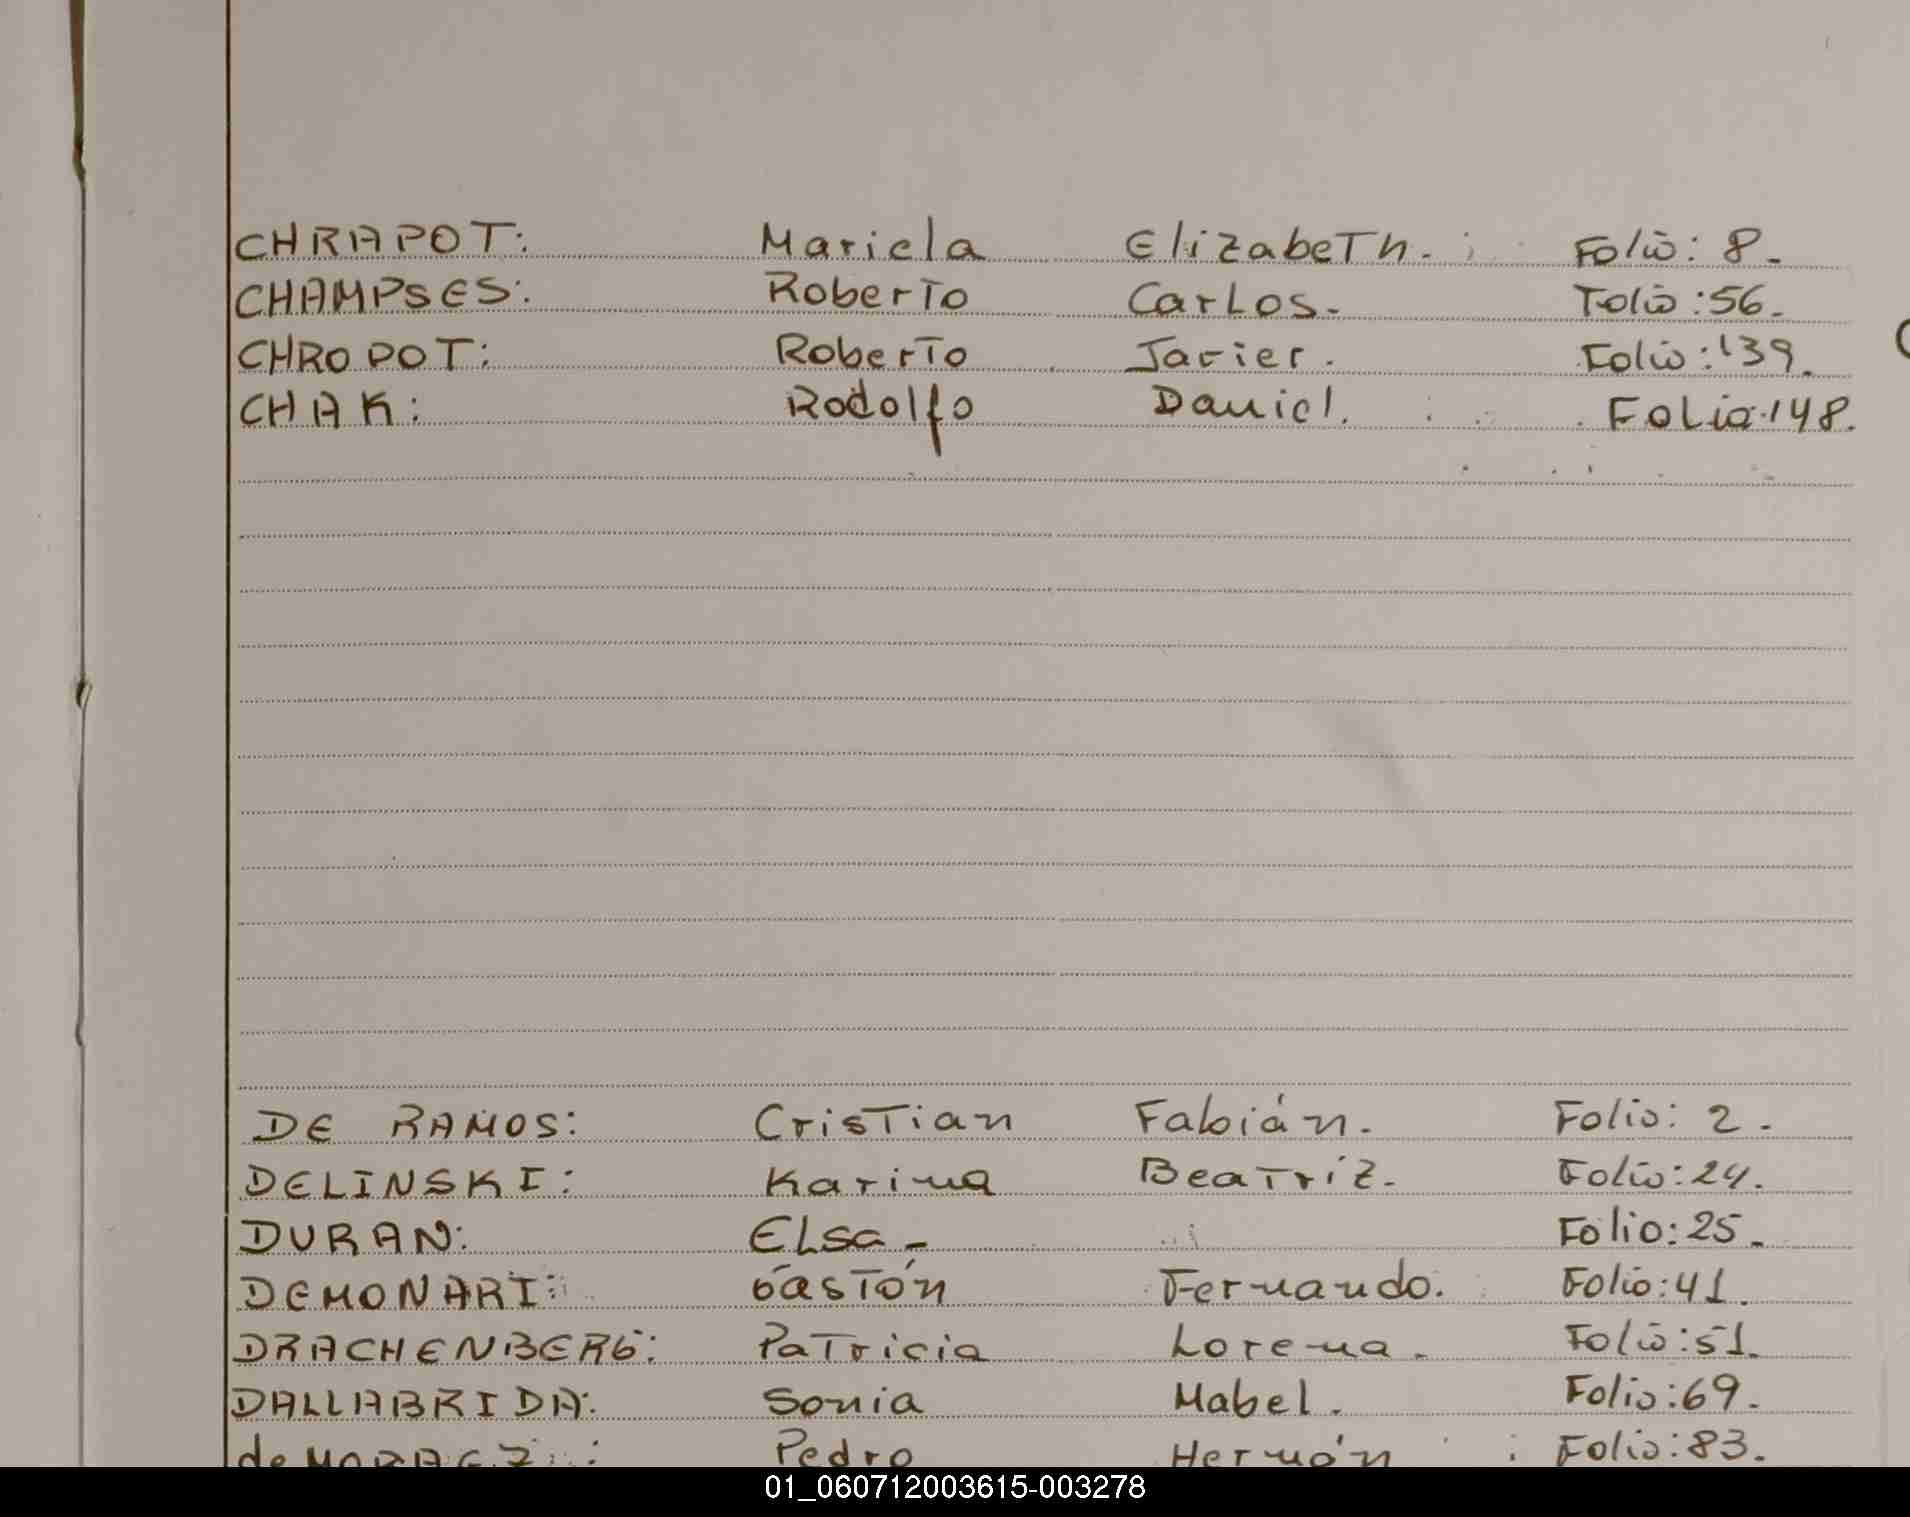 CHRAPOT: Mariela Elizabeth. Folio: 8.
CHAMPSES: Roberto Carlos. Folio: 56.
CHROPOT: Roberto Javier. Folio: 139.
CHAK: Rodolfo Daniel. Folio: 148.
DE RAMOS: Cristian Fabián. Folio: 2.
DELINSKI: Karina Beatríz. Folio: 24.
DURAN: Elsa. Folio: 25.
DEMONARI: Gastón Fernando. Folio: 41.
DRACHENBERG: Patricia Lorena. Folio: 51.
DALLABRIDA: Sonia Mabel. Folio: 69.
Pedro Hernán Folio: 83.
01_060712003615-003278